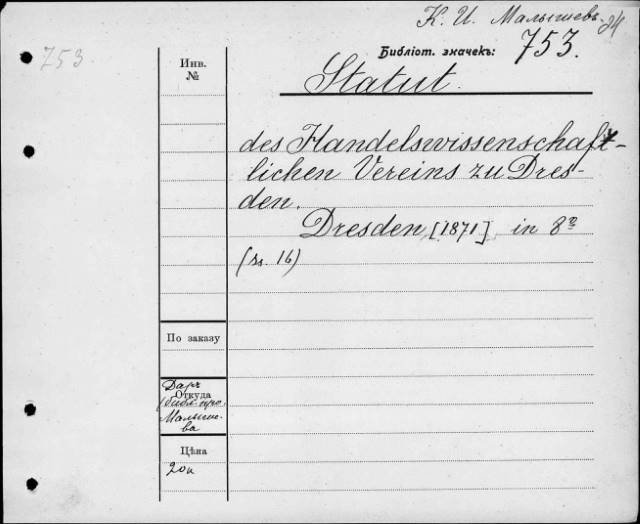 К. И. Малышевъ. 24
753
Библіот. значекъ: 753.
Инв.
№
Statut.
des Handelswissenschaft-
lichen Vereins zu Dres-
den.
Dresden [1871] in 8º
(ss. 16)
По заказу
Даръ
Откуда
(библ. про.
Малыше-
ва
Цѣна
20 к